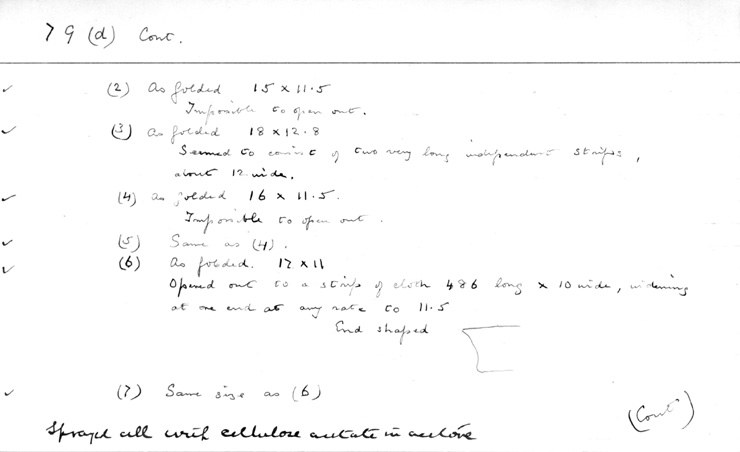 79 (d) Cont.
(2) As folded 15 x 11.5
Impossible to open out.
(3) as folded 18 x 12.8
Seemed to consist of two very long independent strips,
about 12 wide.
(4) as folded 16 x 11.5.
Impossible to open out.
(5) Same as (4).
(6) As folded. 12 x 11
Opened out to a strip of cloth 486 long x 10 wide, widening
at one end at any rate to 11.5
End shaped
(7) Same size as (6)
(Cont)
Sprayed all with cellulose acetate in acetone